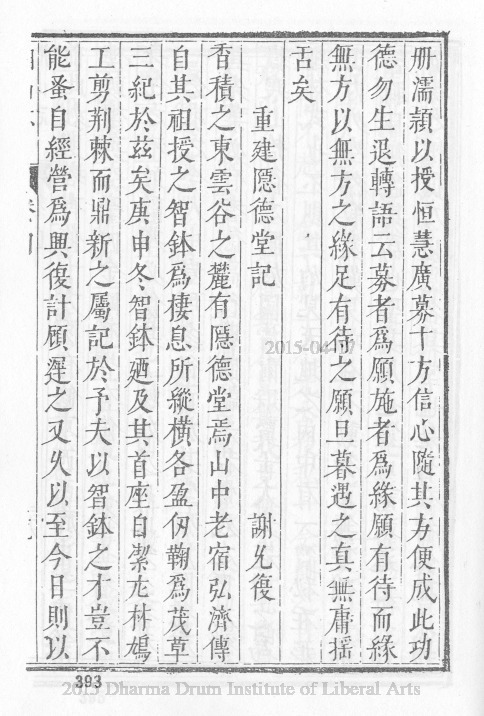 册濡頴以授恒慧廣募十方信心隨其方便成此功
德勿生退轉語云募者爲願施者爲緣願有待而緣
無方以無方之緣足有待之願旦暮遇之真無庸揺
舌矣
重建隱德堂記
謝兆復
香積之東雲谷之麓有隱德堂焉山中老宿弘濟傳
自其祖授之智鉢爲棲息所縱橫各盈仞鞠爲茂草
三紀於兹矣庚申冬智鉢廼及其首座自潔尨材鳩
工剪荆棘而鼎新之屬記於予夫以智鉢之才豈不
能蚤自經營爲興復計顧遲之又久以至今日則以
393
2015-04-07
2015 Dharma Drum Institute of Liberal Arts